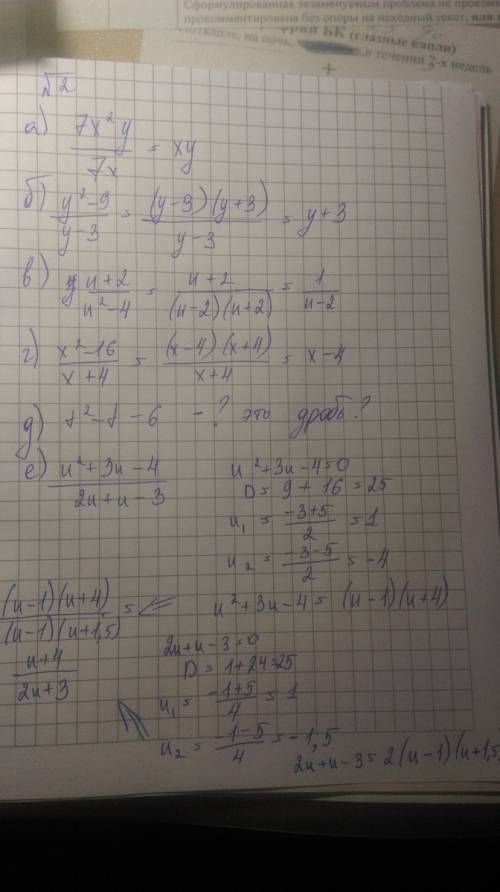 Сформулированная экзаменуемым проблема не проком
прокомментирована без опоры на исходный текст, или
БК (глазные капли)
капле, на ночь, в течении 2-х недель
№2
а) 7x²y / 7x = xy
б) y²-9 / y-3 = (y-3)(y+3) / y-3 = y+3
в) n+2 / n²-4 = n+2 / (n-2)(n+2) = 1 / n-2
г) x²-16 / x+4 = (x-4)(x+4) / x+4 = x-4
д) t²-t-6 -? это дробь?
е) n²+3n-4 / 2n+n-3
n²+3n-4=0
D= 9+16=25
n₁ = -3+5 / 2 = 1
n₂ = -3-5 / 2 = -4
n²+3n-4= (n-1)(n+4)
(n-1)(n+4) / (n-1)(n+1,5) =
n+4 / 2n+3
2n+n-3=0
D=1+24=25
n₁= -1+5 / 4 = 1
n₂ = -1-5 / 4 = -1,5
2n+n-3=2(n-1)(n+1,5